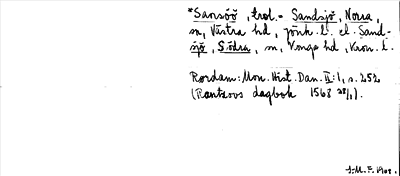 *Sansöö, trol. = Sandsjö, Norra,
sn, Västra hd, Jönk. l. el. Sand-
sjö, Södra, sn, Konga hd, Kron. l.
Rørdam: Mon. Hist. Dan. II:1, s. 252
(Rantzovs dagbok 1568 28/1).
J.M.F. 1908.